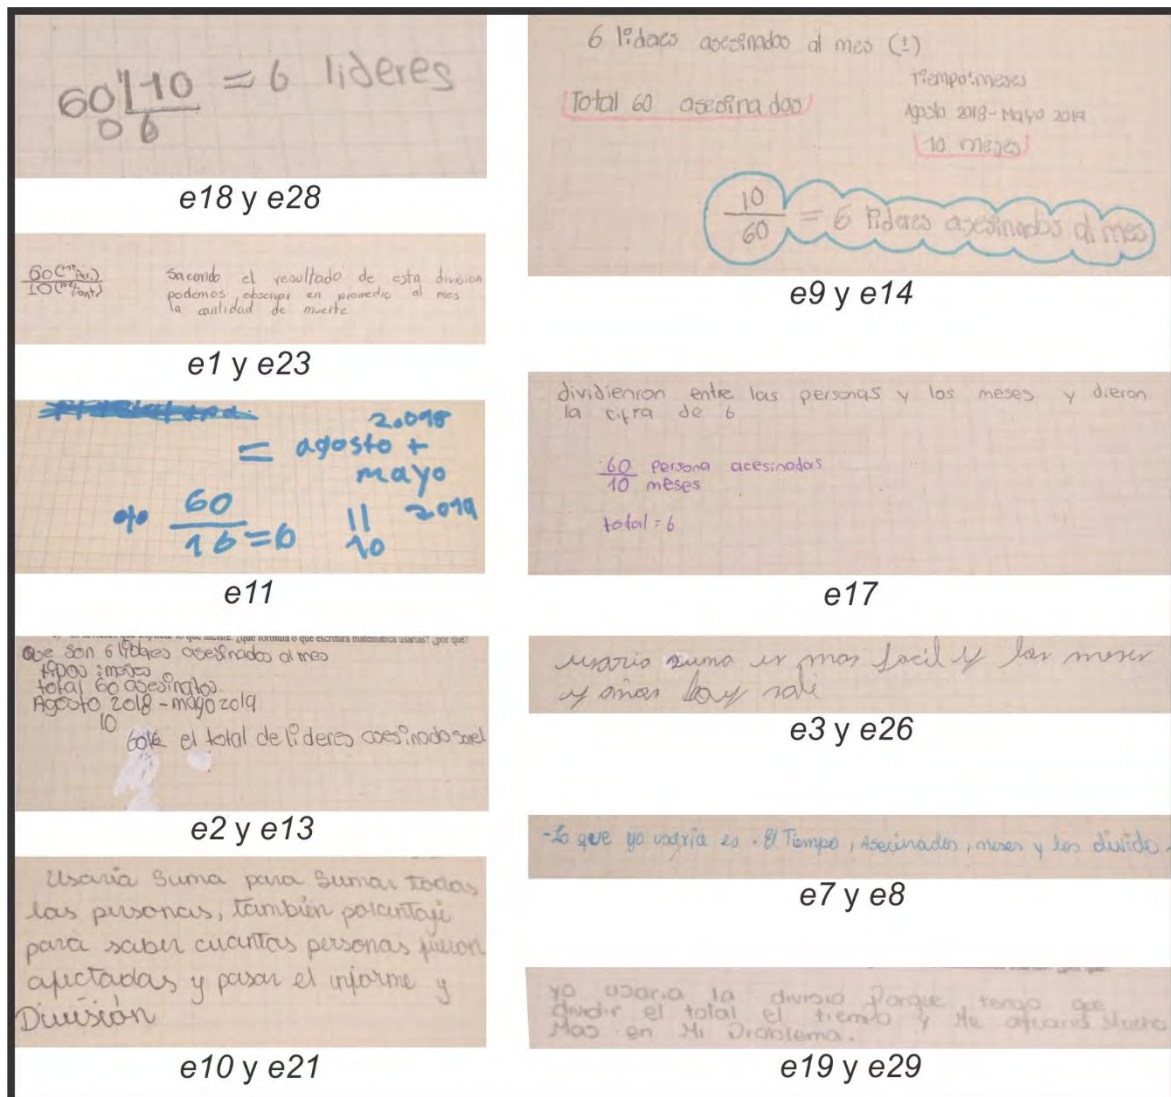 60 10 = 6 lideres
0 6
e18 y e28
60
10
Sacando el resultado de esta division
podemos observar en promedio al mes
la cantidad de muerte
e1 y e23
2.018
= agosto +
mayo
60 / 16 = 6 11 2.019
10
e11
que formula o que escritura matematica usarias? ¿por que?
Que son 6 lideres asesinados al mes
total 60 asesinatos.
Agosto 2018 - mayo 2019
10
el total de lideres asesinado
e2 y e13
Usaria Suma para Sumar todas
las personas, también porcentaje
para saber cuantas personas fueron
afectadas y pasar el informe y
División
e10 y e21
6 lideres asesinados al mes (±)
Tiempo: meses
Total 60 asesinados
Agosto 2018 - Mayo 2019
10 meses
10
60 = 6 lideres asesinados al mes
e9 y e14
dividienron entre las personas y los meses y dieron
la cifra de 6
60 Persona acesinadas
10 meses
total = 6
e17
usario suma es mas facil y los meses
y años
e3 y e26
-Lo que yo usaria es. El Tiempo, Asecinados, meses y los divido.
e7 y e8
yo usaria la divisio Porque tengo que
dividir el total el tiempo y Me
Mas en Mi Problema.
e19 y e29